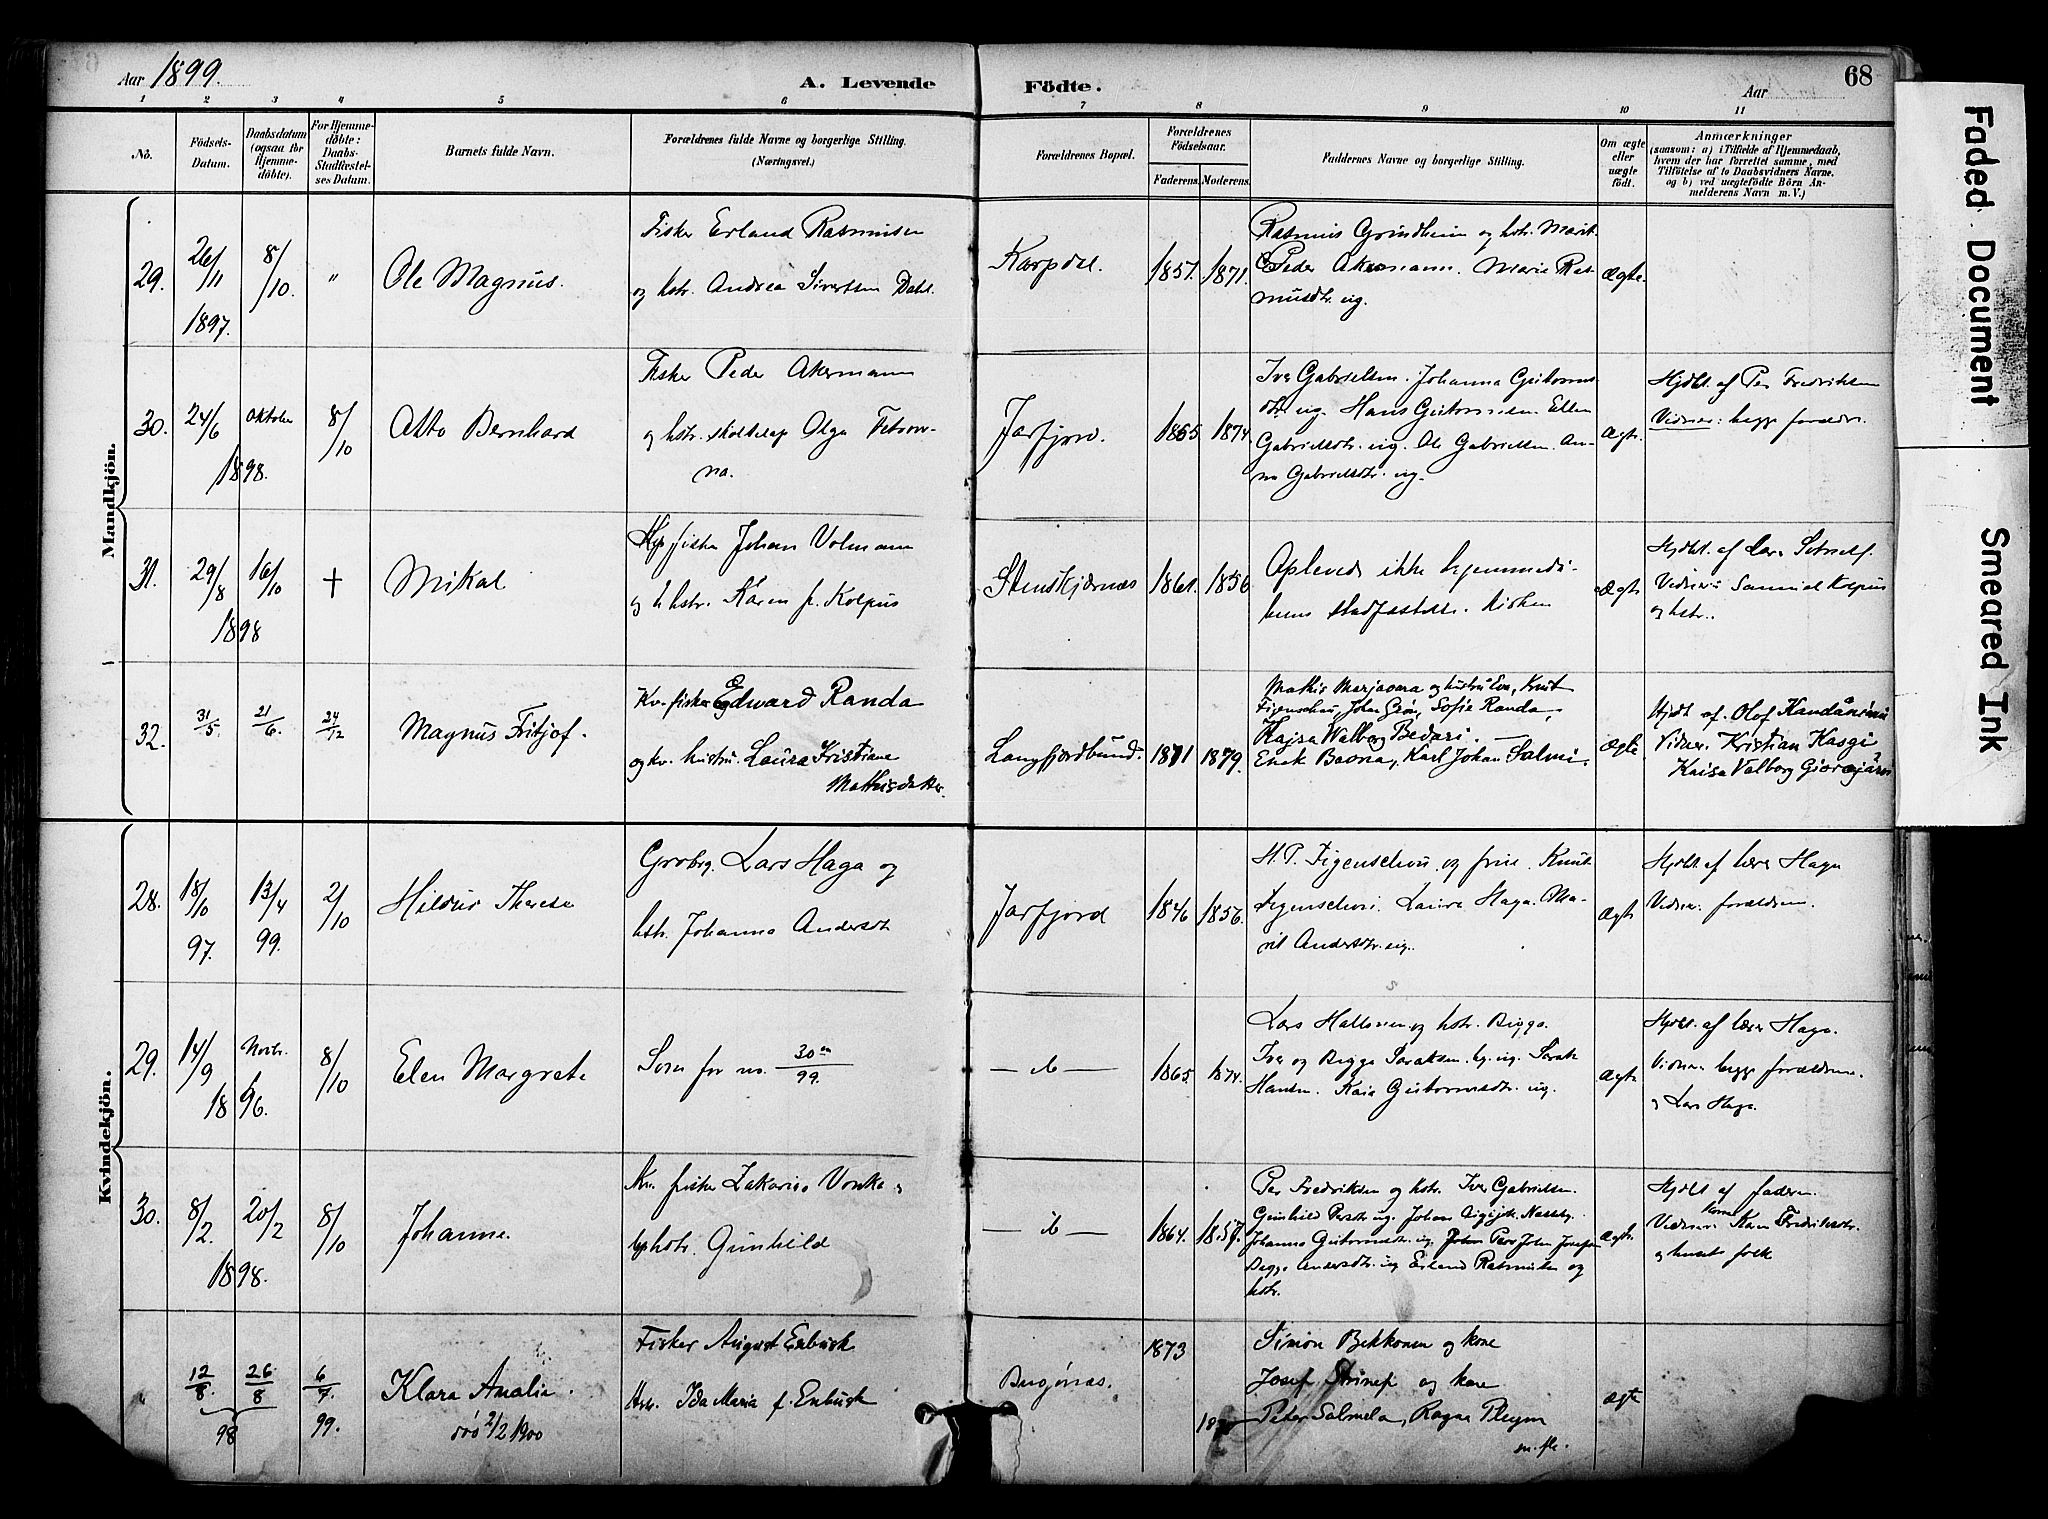 Aar 1899.
A. Levende Födte.
Aar
68
1 2 3 4 5 6 7 8 9 10 11
No.
Födsels-Datum.
Daabsdatum (ogsaa for Hjemmedöbte).
For Hjemmedöbte: Daabs-Stadfæstelses Datum.
Barnets fulde Navn.
Forældrenes fulde Navne og borgerlige Stilling. (Næringsvei.)
Forældrenes Bopæl.
Forældrenes Födselsaar.
Faderens. Moderens.
Faddernes Navne og borgerlige Stilling.
Om ægte eller uægte födt.
Anmærkninger (saasom: a) i Tilfælde af Hjemmedaab, hvem der har forrettet samme, med Tilföielse af to Daabsvidners Navne, og b) ved uægtefödte Börn Anmelderens Navn m. V.)
Mandkjön.
29.
26/11 1897.
8/10.
"
Ole Magnus.
Fisker Erland Rasmusen
og hstr. Andrea Sivertsen Dahl.
Karpdal.
1857. 1871.
Rasmus Grindheim og hstr. Marit.
Peder Akermann. Marie Ras-
musdtr. ug.
Ægte.
30.
24/6 1898.
Oktober
8/10
Otto Bernhard
Fisker Peder Akermann
og hstr. skoltelap Olga Fetrow-
na.
Jarfjord.
1865 1874.
Iver Gabrielsen. Johanna Guttorms-
dtr. ug. Hans Guttormsen. Ellen
Gabrielsdtr. ug. Ole Gabrielsen. An-
na Gabrielsdtr. ug.
Ægte.
Hjdbt. af Per Fredriksen
Vidner: begge forældre.
31.
29/8 1898
16/10
†
Mikal
Kv. fisker Johan Volmann
og k. hstr. Karen f. Kolpus
Stenskjærnæs
1861. 1856
Oplevede ikke hjemmedaa-
bens stadfæstelse i kirken
Ægte
Hjdbt. af
Vidner: Samuel Kolpus
og hstr..
32.
31/5.
21/6.
24/12
Magnus Fritjof.
Kv. fisker Edward Randa
og kv. hustru Laura Kristiane
Mathisdatter.
Langfjordbund.
1871 1879.
Mathis Marjavara og hustru Eva, Knut
Figenschau, Johan Grön, Sofie Randa,
Kajsa Walborg Bedari.
Erik Baona, Karl Johan Salmi.
Ægte
Hjdt af. Olof
Vidner. Kristian Kasgi
Kaisa Valborg
Kvindekjön.
28.
18/10 97.
13/4 99.
2/10
Hildur Therese
Grobrg. Lars Haga og
hstr. Johanna Andersdtr
Jarfjord
1846 1856.
H. P. Figenschou og frue. Knut
Figenschou. Laura Haga. Ma-
rit Andersdtr. ug.
Ægte
Hjdbt. af lærer Haga
Vidner. forældrene.
29.
14/9 1896.
Novbr.
8/10
Elen Margrete
Som for no. 30 m/99.
— ib —
1865. 1874.
Lars Hallonen og hstr. Bigga.
Iver og Bigga Saraksen. ug. Sarah
Hansen. Kaia Guttormsdtr. ug.
Ægte
Hjdbt. af lærer Haga.
Vidner. begge forældrene.
og Lars Haga.
30.
8/2. 1898.
20/2
8/10
Johanne.
Kv. fisker Zakarias Vonka og
laphstr. Gunhild
— ib —
1864. 1857.
Per Fredriksen og hstr. Iver Gabrielsen.
Gunhild Persdtr. ug. Johan
Johanna Guttormsdtr. ug. Per John Josefsen
Begga Andersdtr. ug Erland Rasmusen og
hstr.
Ægte.
Hjdbt af faderen.
Vidner: Karen Fredriksdtr.
og husets folk
12/8. 98
26/8
6/7. 99.
Klara Amalie.
död 2/2 1900
Fisker August Enbusk
Hstr. Ida Maria f. Enbusk
Bugönæs.
1873
Simon Bekkonen og kone
Josef Strinep og kone
Peter Salmela, Ragna Pleym
m. fl.
Ægte
Faded Document
Smeared Ink